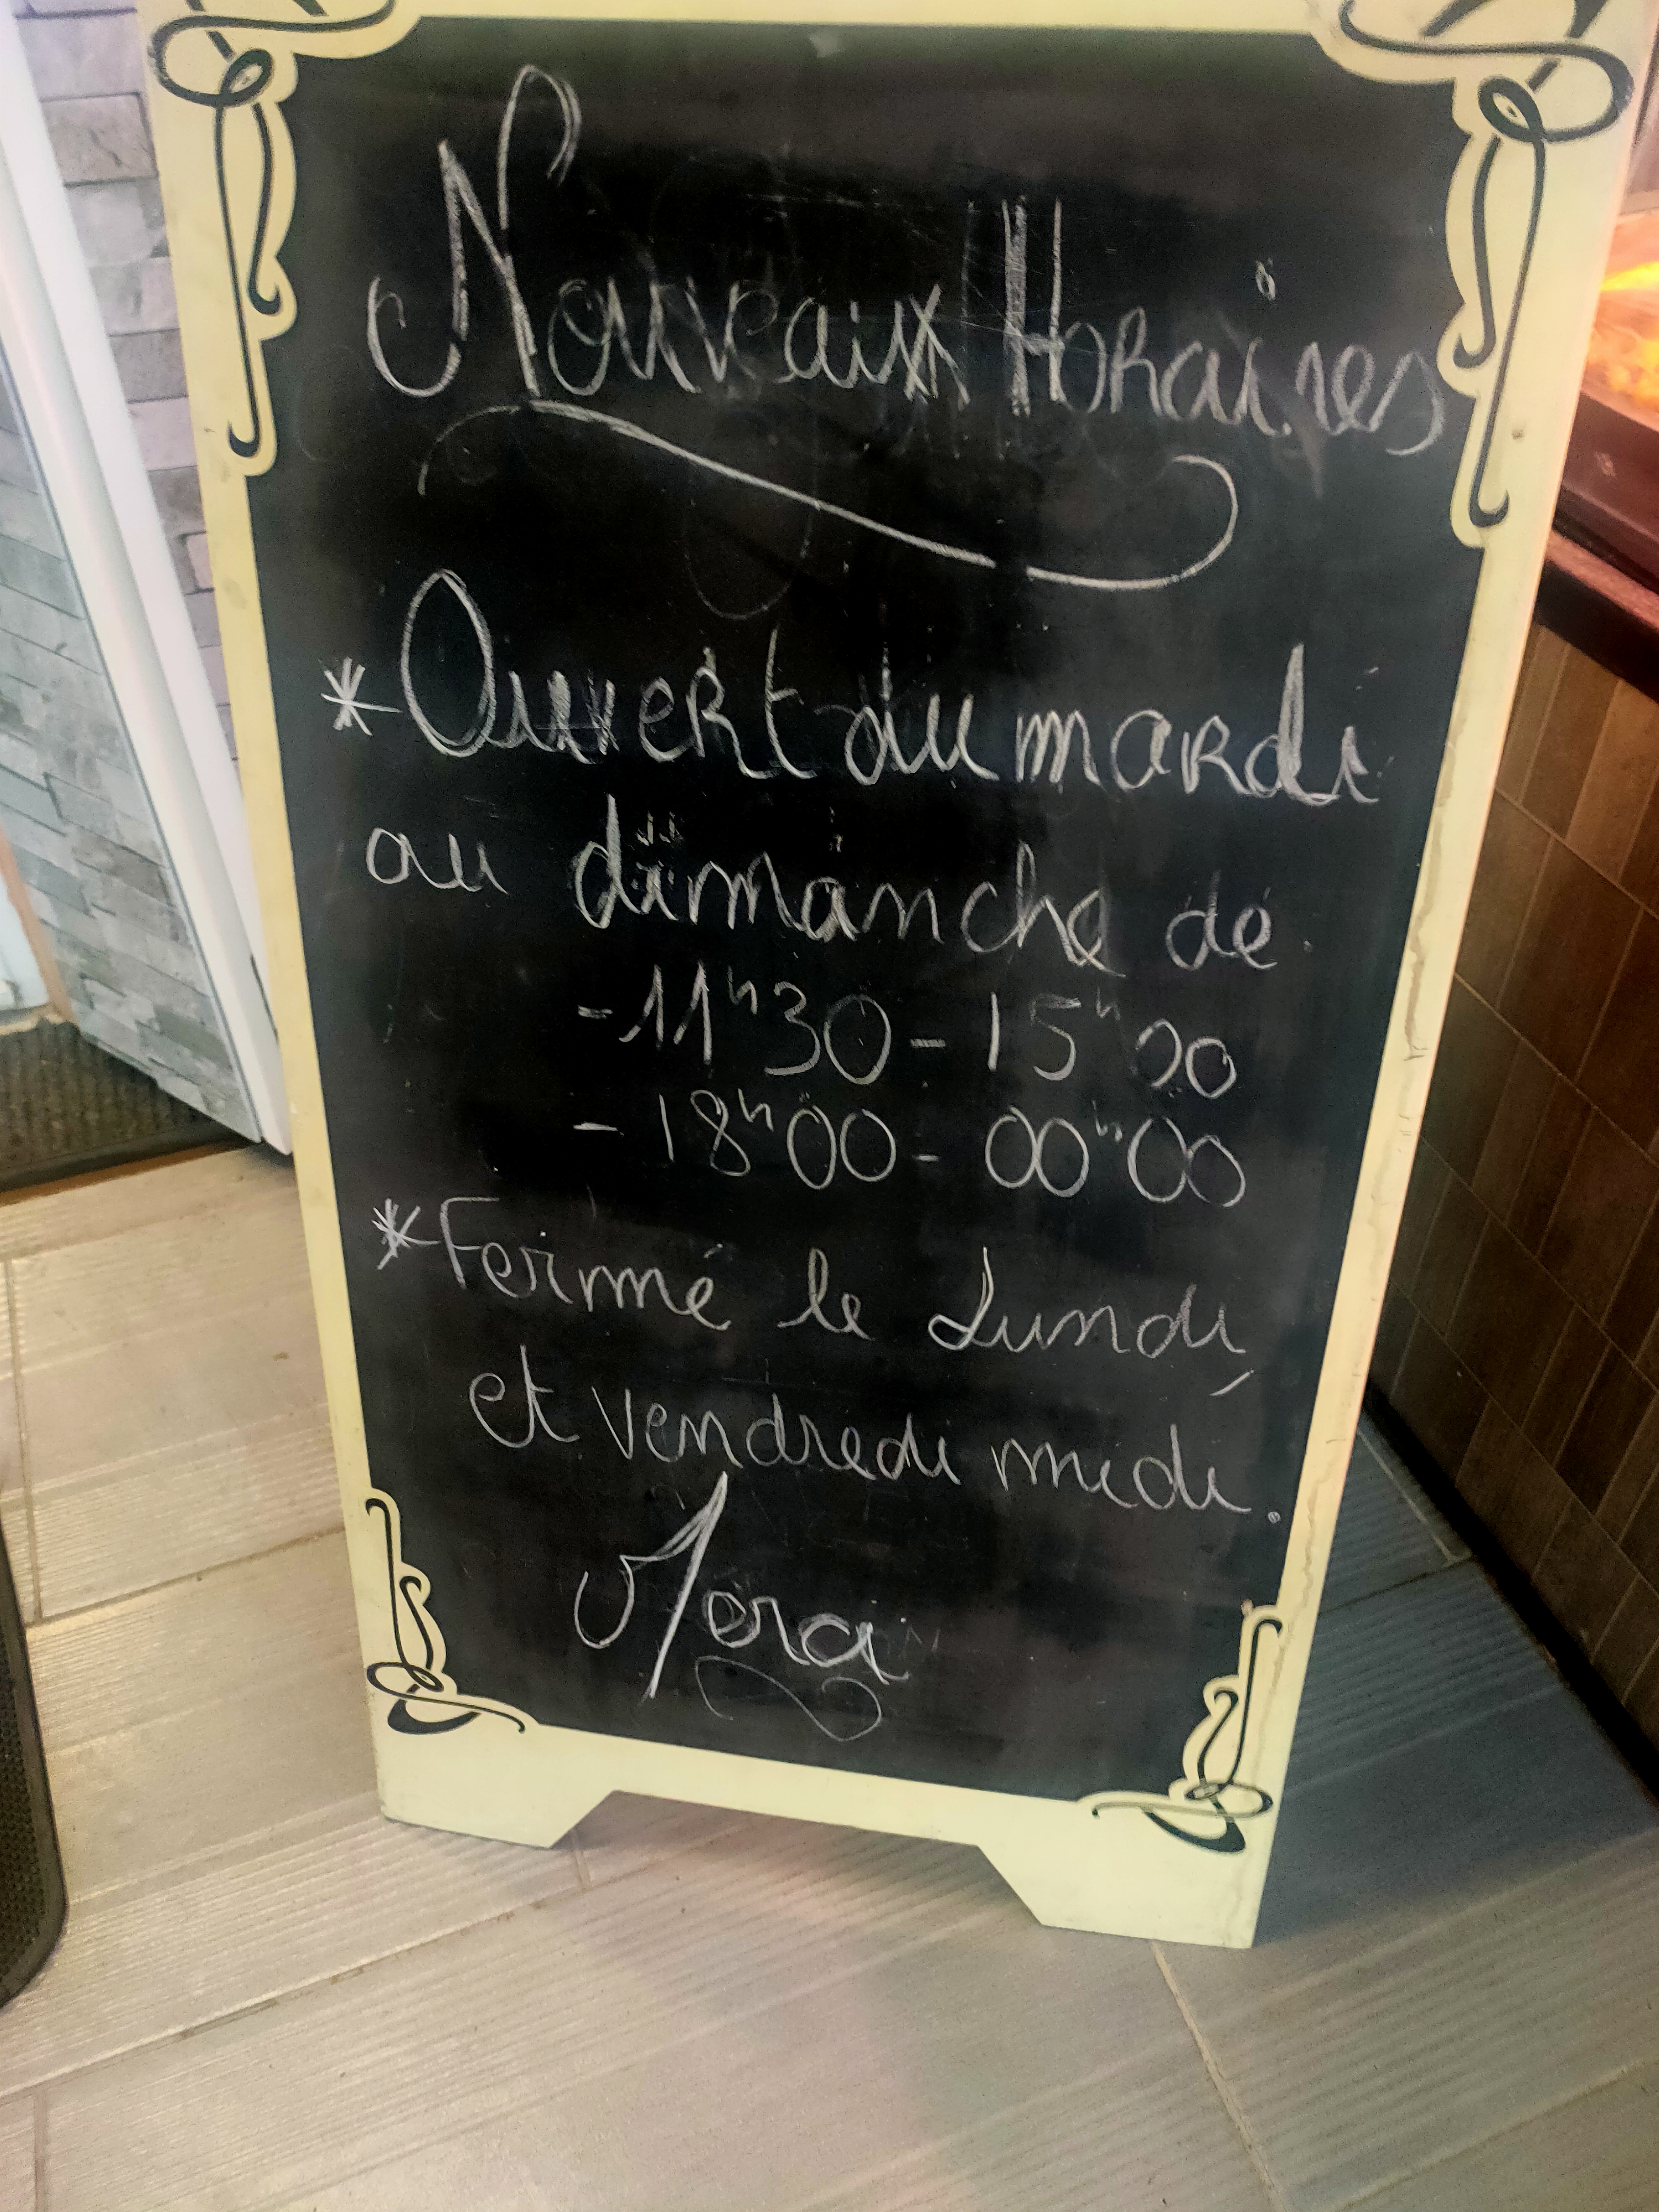 Nouveaux Horaires
* Ouvert du mardi
au dimanche de
- 11h30 - 15h00
- 18h00 - 00h00
* Fermé le Lundi
et vendredi midi.